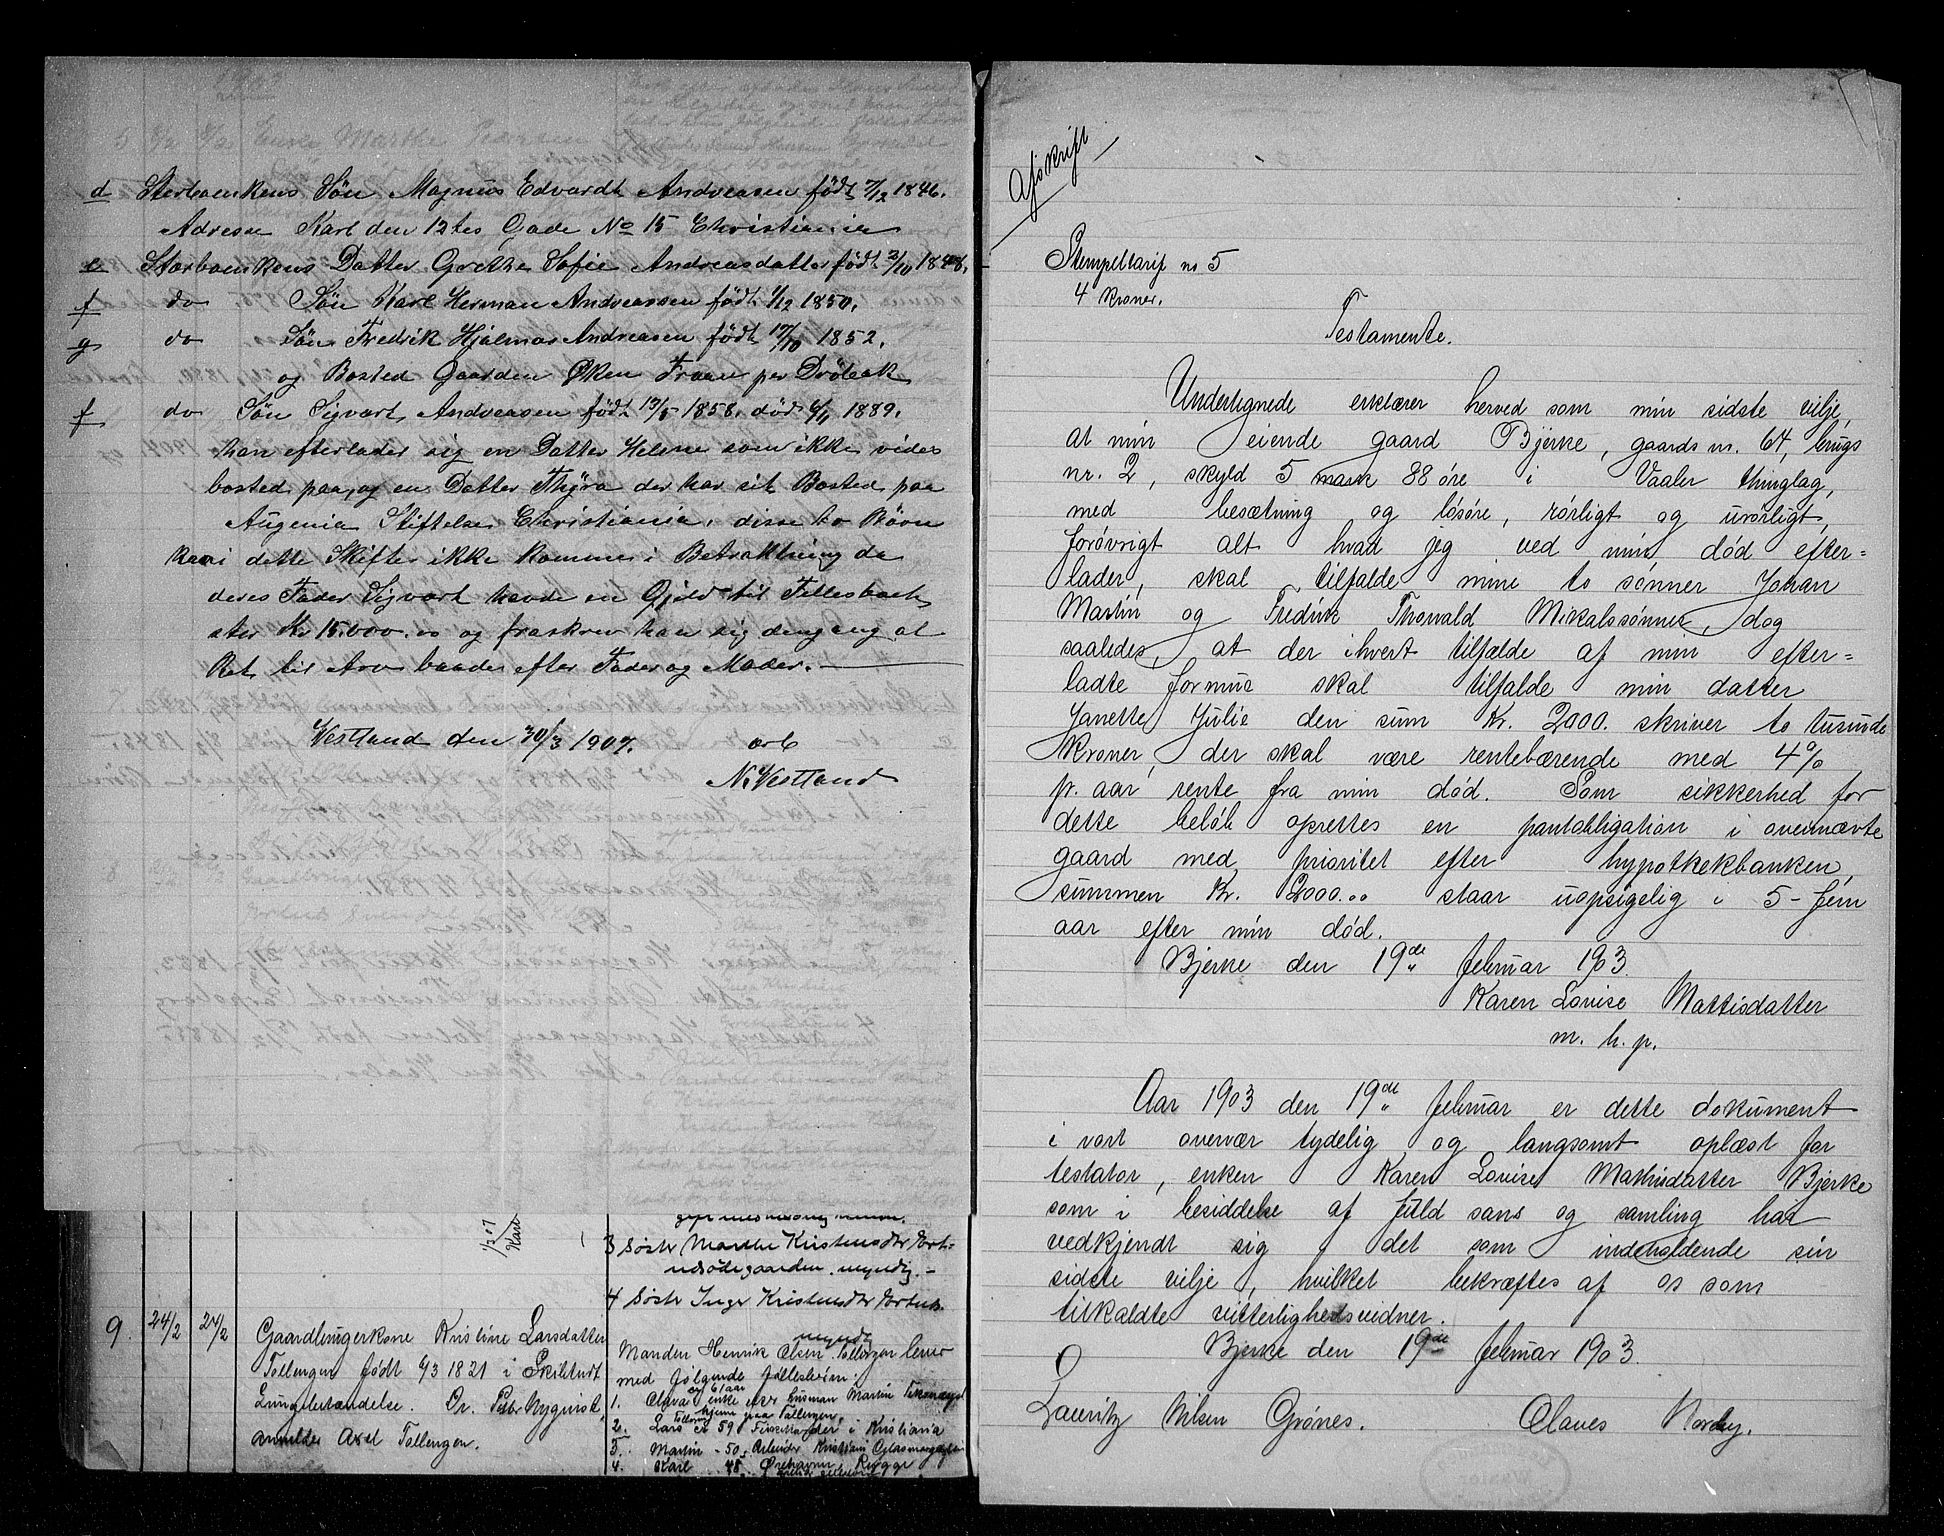 d Sterboenkens Søn Magnus Edvardt Andreasen født 7/12 1846.
Adresse Karl den 12tes Gade No 15 Christiania
e Sterboenkens Datter Grethe Sofie Andreasdatter født 2/10 1848.
f do Søn Karl Herman Andreassen født 1/12 1850.
g do Søn Fredrik Hjalmar Andreasen født 17/10 1852.
og Bosted Gaarden Øken Fraan per Drøbak
f do Søn Sigvart Andreasen født 13/5 1858. død 6/1 1889.
han efterlader sig en Datter Helene som ikke vides
bosted paa, og en Datter Thyra der har sit Bosted paa
Augenia Stiftelse Christiania. disse to Børn
kan i dette Skifte ikke komme i Betraktning da
deres Fader Sigvart havde en Gjeld til Fellesboet
stor Kr 15.000.00 og fraskrev han sig dengang al
Ret til Arv baade efter Fader og Moder.
Vestland den 30/3 1907.
ærb
N. Vestland
3 Søster Marthe Kristensdtr
ødegaarden. myndig.
4 Søster Inger Kristensdtr
9. 24/2 24/2 Gaardbrugerkone Kristine Larsdatter
Tollengen født 6/3 1821 i Skibtvedt
Lungebetændelse. Dr. Nyquist,
anmelder Axel Tollengen.
myndig
Manden Henrik Olsen Tollergen lever
med følgende fællesbørn:
1. Olava 61 aar enke efter husman Martin
hjemme paa Tollengen,
2. Lars er 59 i Kristiania
3. Martin - 50 Arbeider Kristiania
4. Karl .. 48 Rygge
Afskrift
Stempeltarif no 5
4 kroner.
Testamente.
Undertegnede erklærer herved som min sidste vilje,
at min eiende gaard Bjerke, gaards nr. 64, brugs
nr. 2, skyld 5 mark 88 øre i Vaaler thinglag,
med besætning og løsøre, rørligt og urørligt,
forøvrigt alt hvad jeg ved min død efter=
lader, skal tilfalde mine to sønner Johan
Martin og Fredrik Thorvald Mikalssønner, dog
saaledes, at der ihvert tilfælde af min efter=
ladte formue skal tilfalde min datter
Janette Julie den sum Kr. 2000. skriver to tusinde
Kroner, der skal være rentebærende med 4%
p. aar rente fra min død. Som sikkerhed for
dette beløb oprettes en pantobligation i ovennævte
gaard med prioritet efter hypothekbanken,
summen Kr. 2000.00 staar uopsigelig i 5 - fem
aar efter min død.
Bjerke den 19de februar 1903.
Karen Lovise Mattisdatter
m. h. p.
Aar 1903 den 19de februar er dette dokument
i vort overvær tydelig og langsomt oplæst for
testator, enken Karen Lovise Mathisdatter Bjerke
som i besiddelse af fuld sans og samling har
vedkjendt sig det som indeholdende sin
sidste vilje, hvilket bekræftes af os som
tilkaldte vitterlighedsvidner.
Bjerke den 19de februar 1903.
Lauritz Nilsen Grønes. Olaves Nordby.